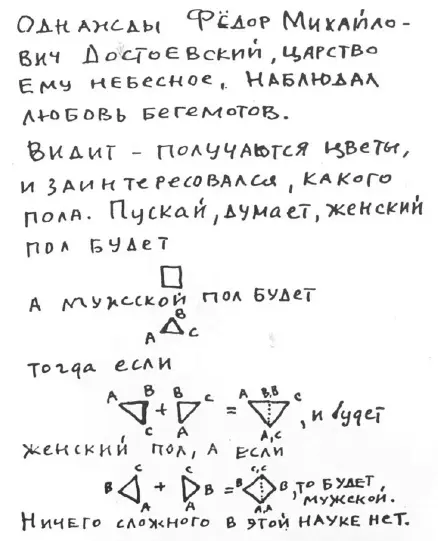 Однажды Фёдор Михайло-
вич Достоевский, царство
ему небесное, наблюдал
любовь бегемотов.
Видит - получаются цветы,
и заинтересовался, какого
пола. Пускай, думает, женский
пол будет
а мужской пол будет
B
A C
тогда если
A B B C A B,B C
+ = , и будет
C A A,C
женский пол, а если
C C C,C
B + B = B B , то будет
A A A,A мужской.
Ничего сложного в этой науке нет.